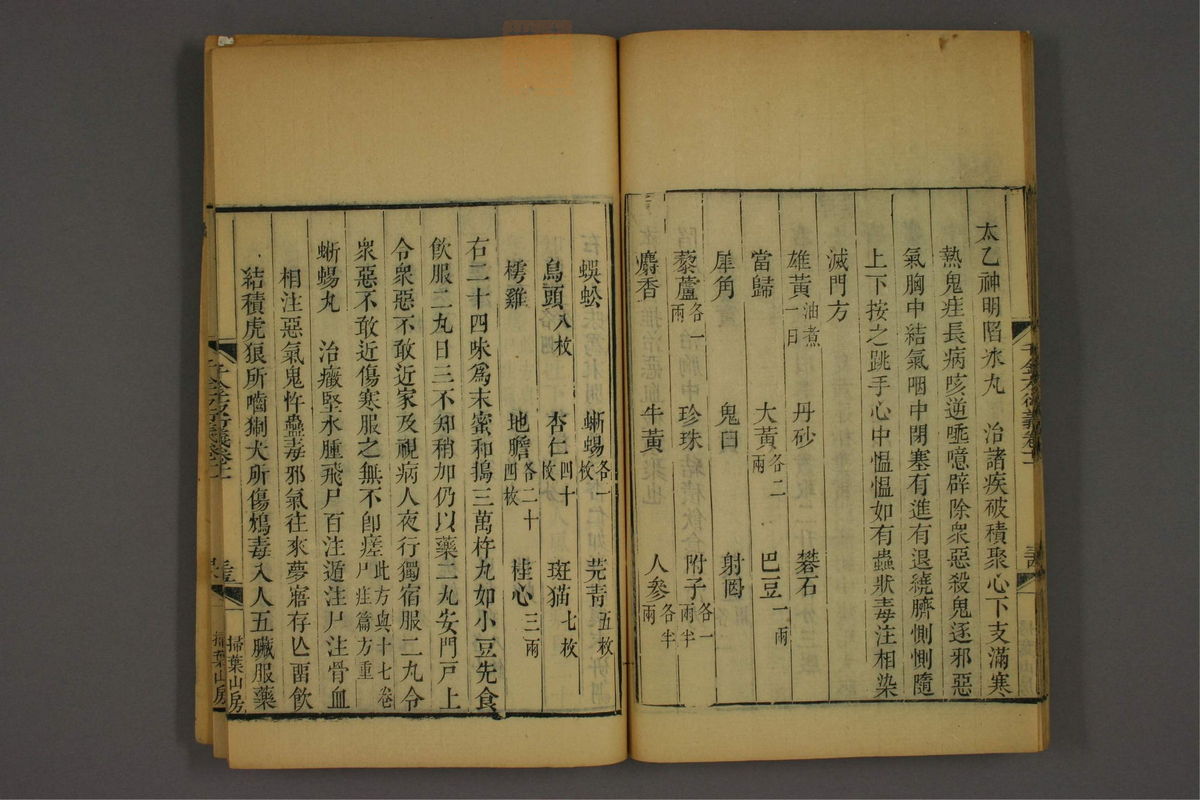 太乙神明陷冰丸　治諸疾破積聚心下支滿寒
熱鬼疰長病咳逆唾噫辟除衆惡殺鬼逐邪惡
氣胸中結氣咽中閉塞有進有退繞臍惻惻隨
上下按之跳手心中愠愠如有蟲狀毒注相染
滅門方
雄黃油煮一日　丹砂　礬石
當歸　大黃各二兩　巴豆一兩
犀角　鬼臼　射罔
藜蘆各一兩　珍珠　附子各一兩半
麝香　牛黃　人參各半兩
蜈蚣　蜥蜴各一枚　芫青五枚
烏頭八枚　杏仁四十枚　斑猫七枚
樗雞　地膽各二十四枚　桂心三兩
右二十四味爲末蜜和搗三萬杵丸如小豆先食
飲服二丸日三不知稍加仍以藥二丸安門戸上
令衆惡不敢近家及視病人夜行獨宿服二丸令
衆惡不敢近傷寒服之無不卽瘥此方與十七卷尸疰篇方重
蜥蜴丸　治癥堅水腫飛尸百注遁注尸注骨血
相注惡氣鬼忤蠱毒邪氣往來夢寤存亾畱飲
結積虎狼所嚙猘犬所傷鴆毒入人五臟服藥
掃葉山房